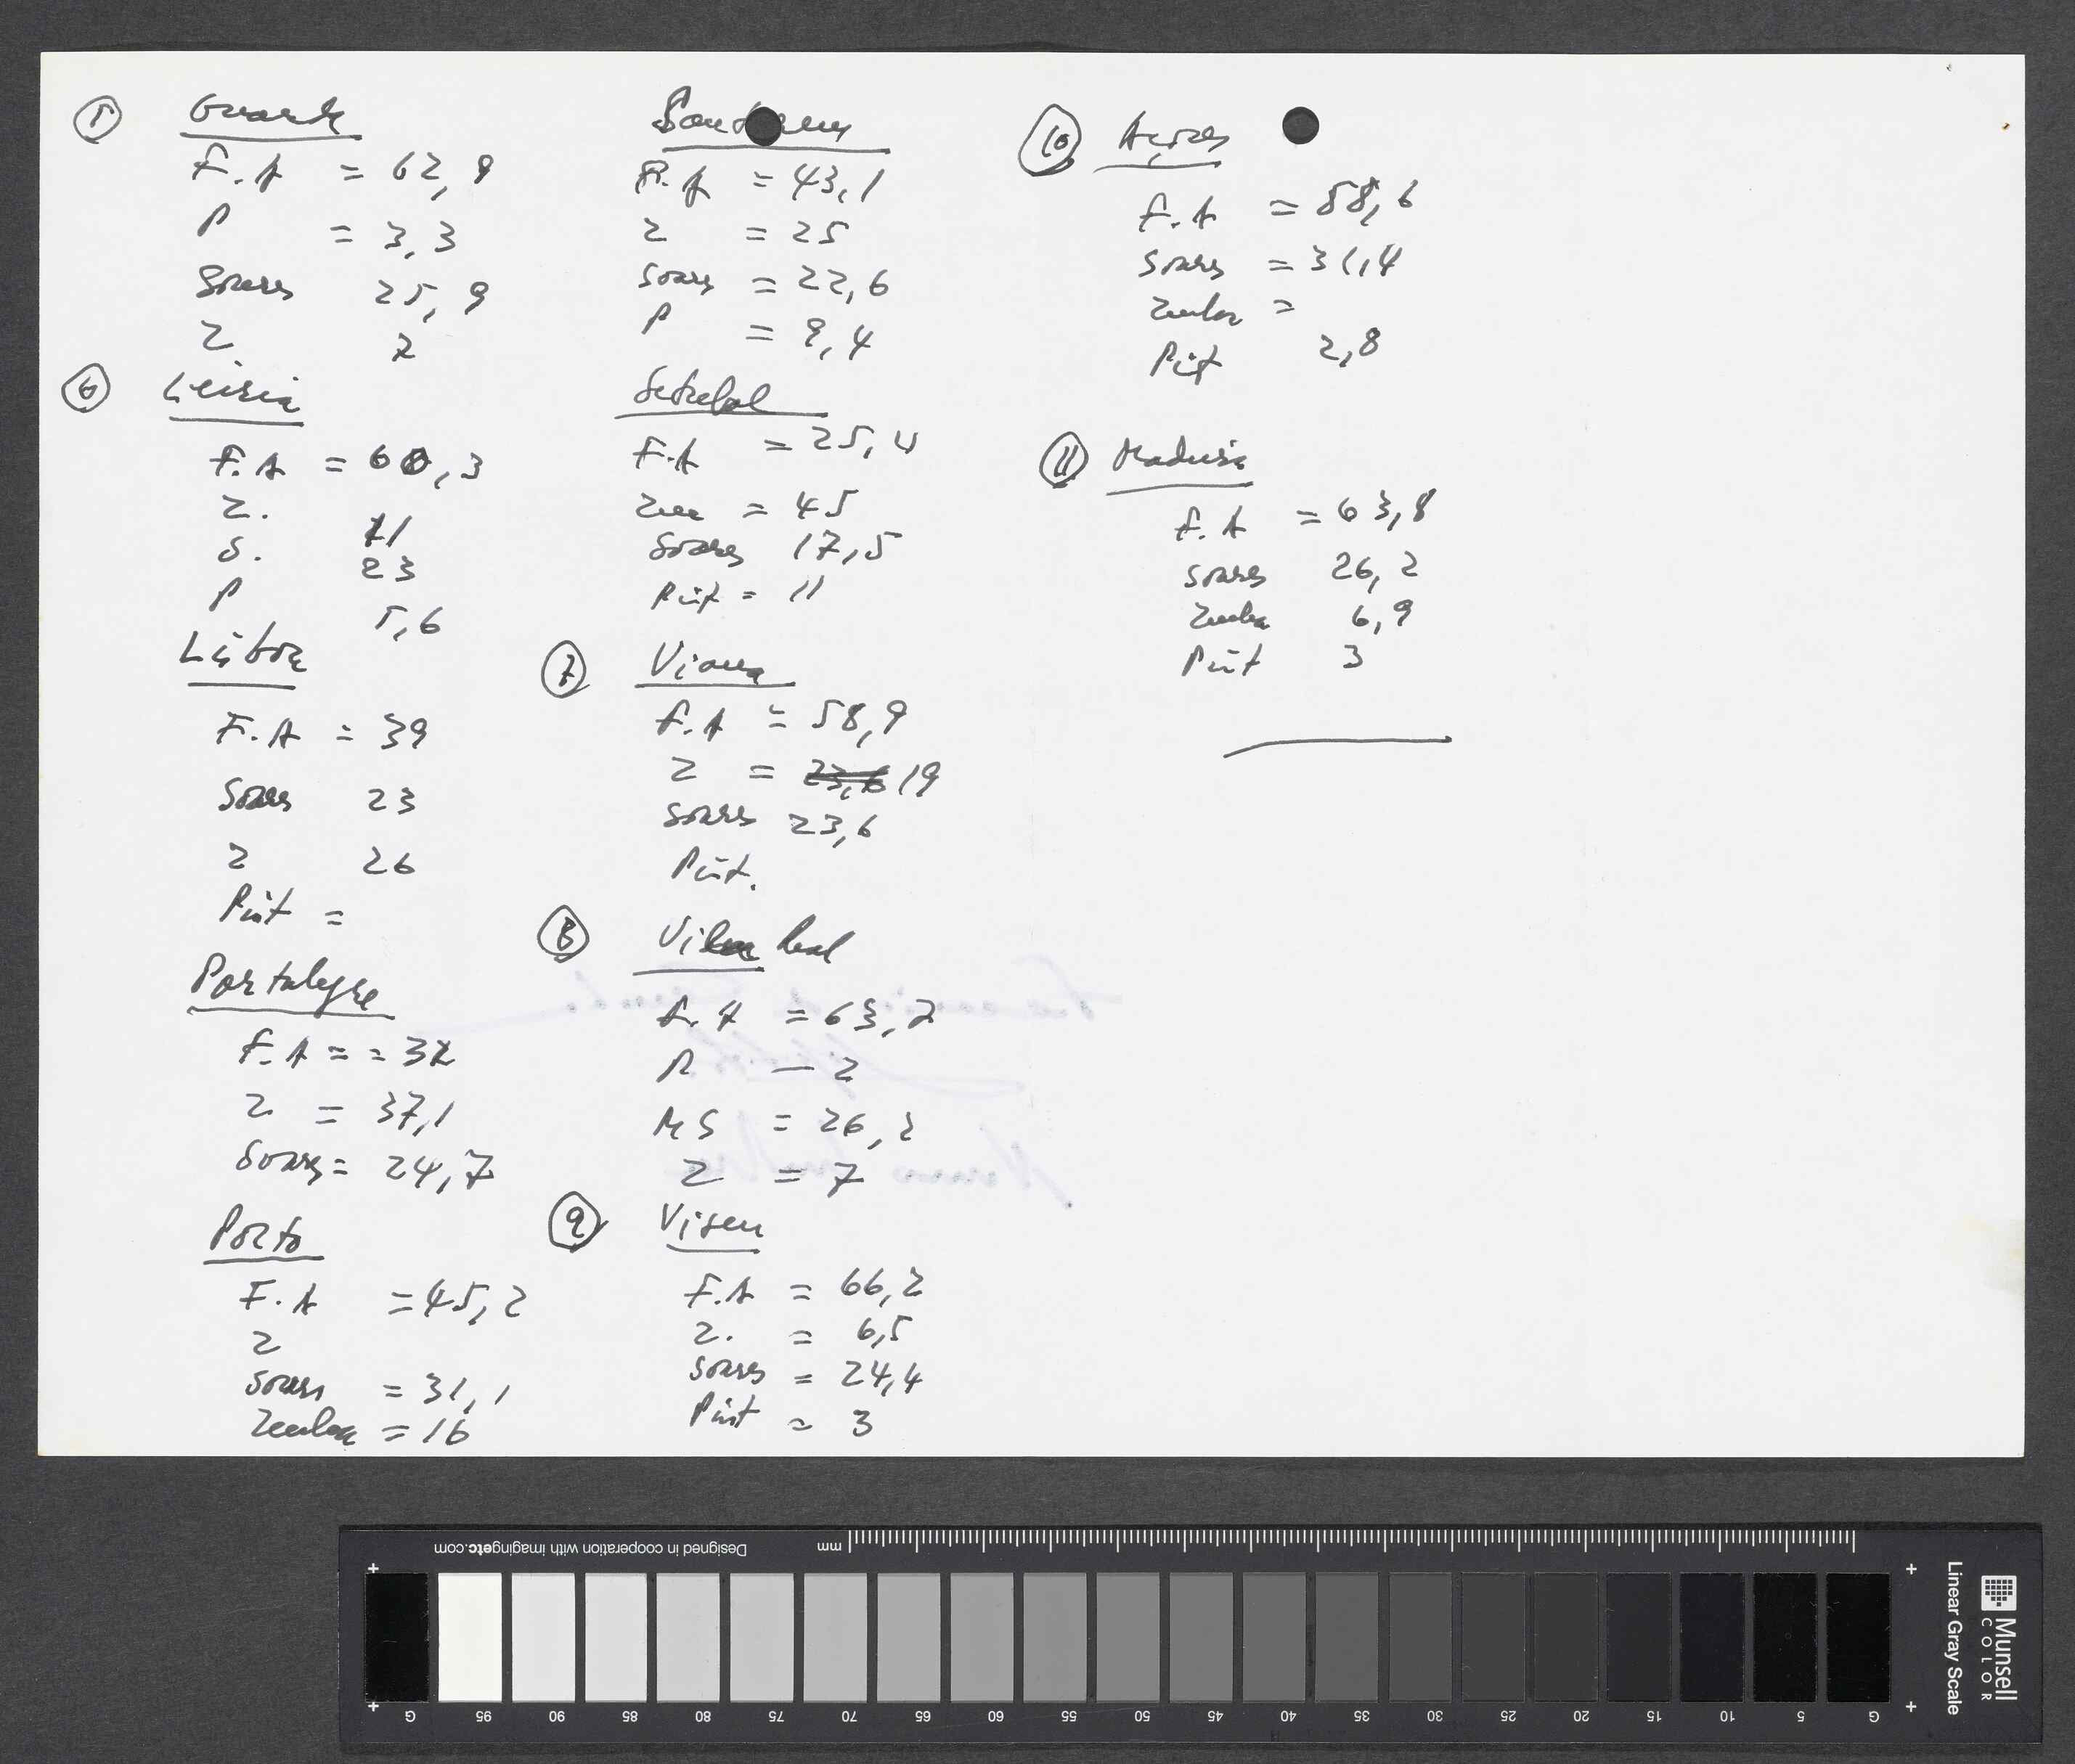 5 Guarda
F.A = 62,9
P = 3,3
Soares 25,9
Z 7
6 Leiria
F.A = 60,3
Z. 11
S. 23
P 5,6
Lisboa
F.A = 39
Soares 23
Z 26
Pint =
Portalegre
F.A = = 32
Z = 37,1
Soares = 24,7
Porto
F.A = 45,2
Z
Soares = 31,1
Zenha = 16
Santarem
F.A = 43,1
Z = 25
Soares = 22,6
P = 9,4
Setubal
F.A = 25,4
Zen = 45
Soares 17,5
Pint = 11
7 Viana
F.A = 58,9
Z = 23,6 19
Soares 23,6
Pint.
8 Vila Real
F.A = 63,7
P — 2
M S = 26,2
Z = 7
9 Viseu
F.A = 66,2
Z. = 6,5
Soares = 24,4
Pint = 3
10 Açores
F.A = 58,6
Soares = 31,4
Zenha =
Pint 2,8
11 Madeira
F.A = 63,8
Soares 26,2
Zenha 6,9
Pint 3
Designed in cooperation with imagingetc.com
mm
G 95 90 85 80 75 70 65 60 55 50 45 40 35 30 25 20 15 10 5 G
Munsell
COLOR
Linear Gray Scale